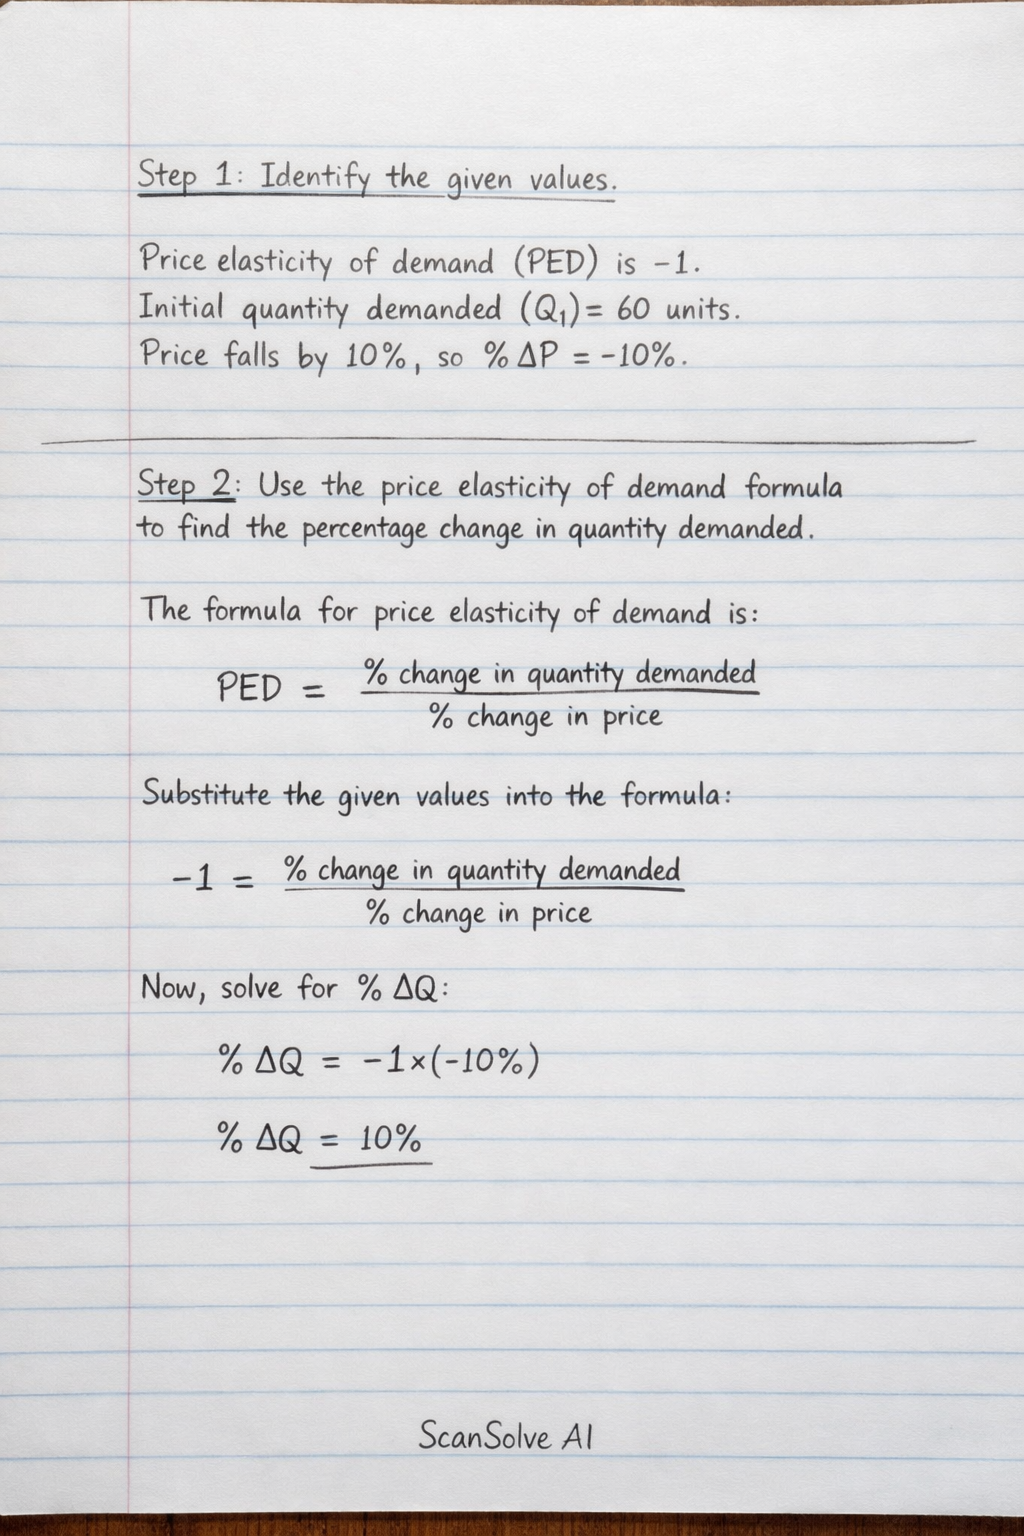 Step 1: Identify the given values.
Price elasticity of demand (PED) is -1.
Initial quantity demanded (Q₁)= 60 units.
Price falls by 10%, so % ΔP = -10%.
Step 2: Use the price elasticity of demand formula
to find the percentage change in quantity demanded.
The formula for price elasticity of demand is:
PED = % change in quantity demanded
% change in price
Substitute the given values into the formula:
-1 = % change in quantity demanded
% change in price
Now, solve for % ΔQ:
% ΔQ = -1×(-10%)
% ΔQ = 10%
ScanSolve AI